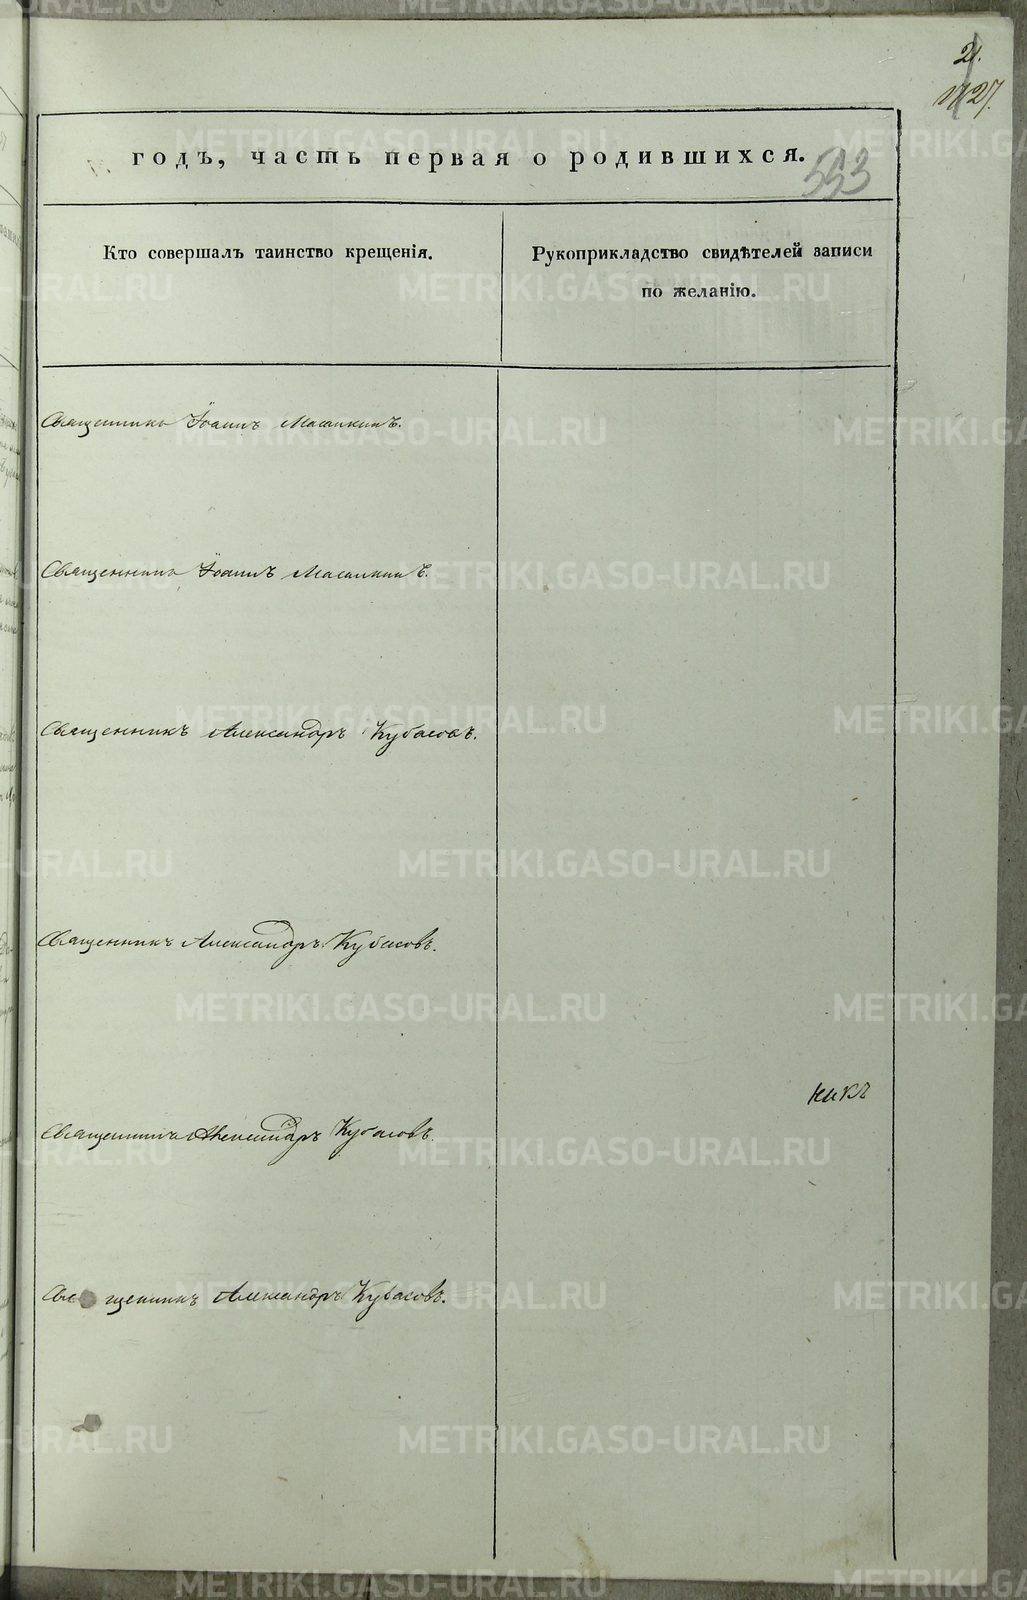 21.
1127.
годъ, часть первая о родившихся.
553
Кто совершалъ таинство крещенія.
Рукоприкладство свидѣтелей записи
по желанію.
Священникъ Іоаннъ Масалкинъ.
Священникъ Іоаннъ Масалкинъ.
Священникъ Александръ Кубасовъ.
Священникъ Александръ Кубасовъ.
никъ
Священникъ Александръ Кубасовъ.
Священникъ Александръ Кубасовъ.
METRIKI.GASO-URAL.RU